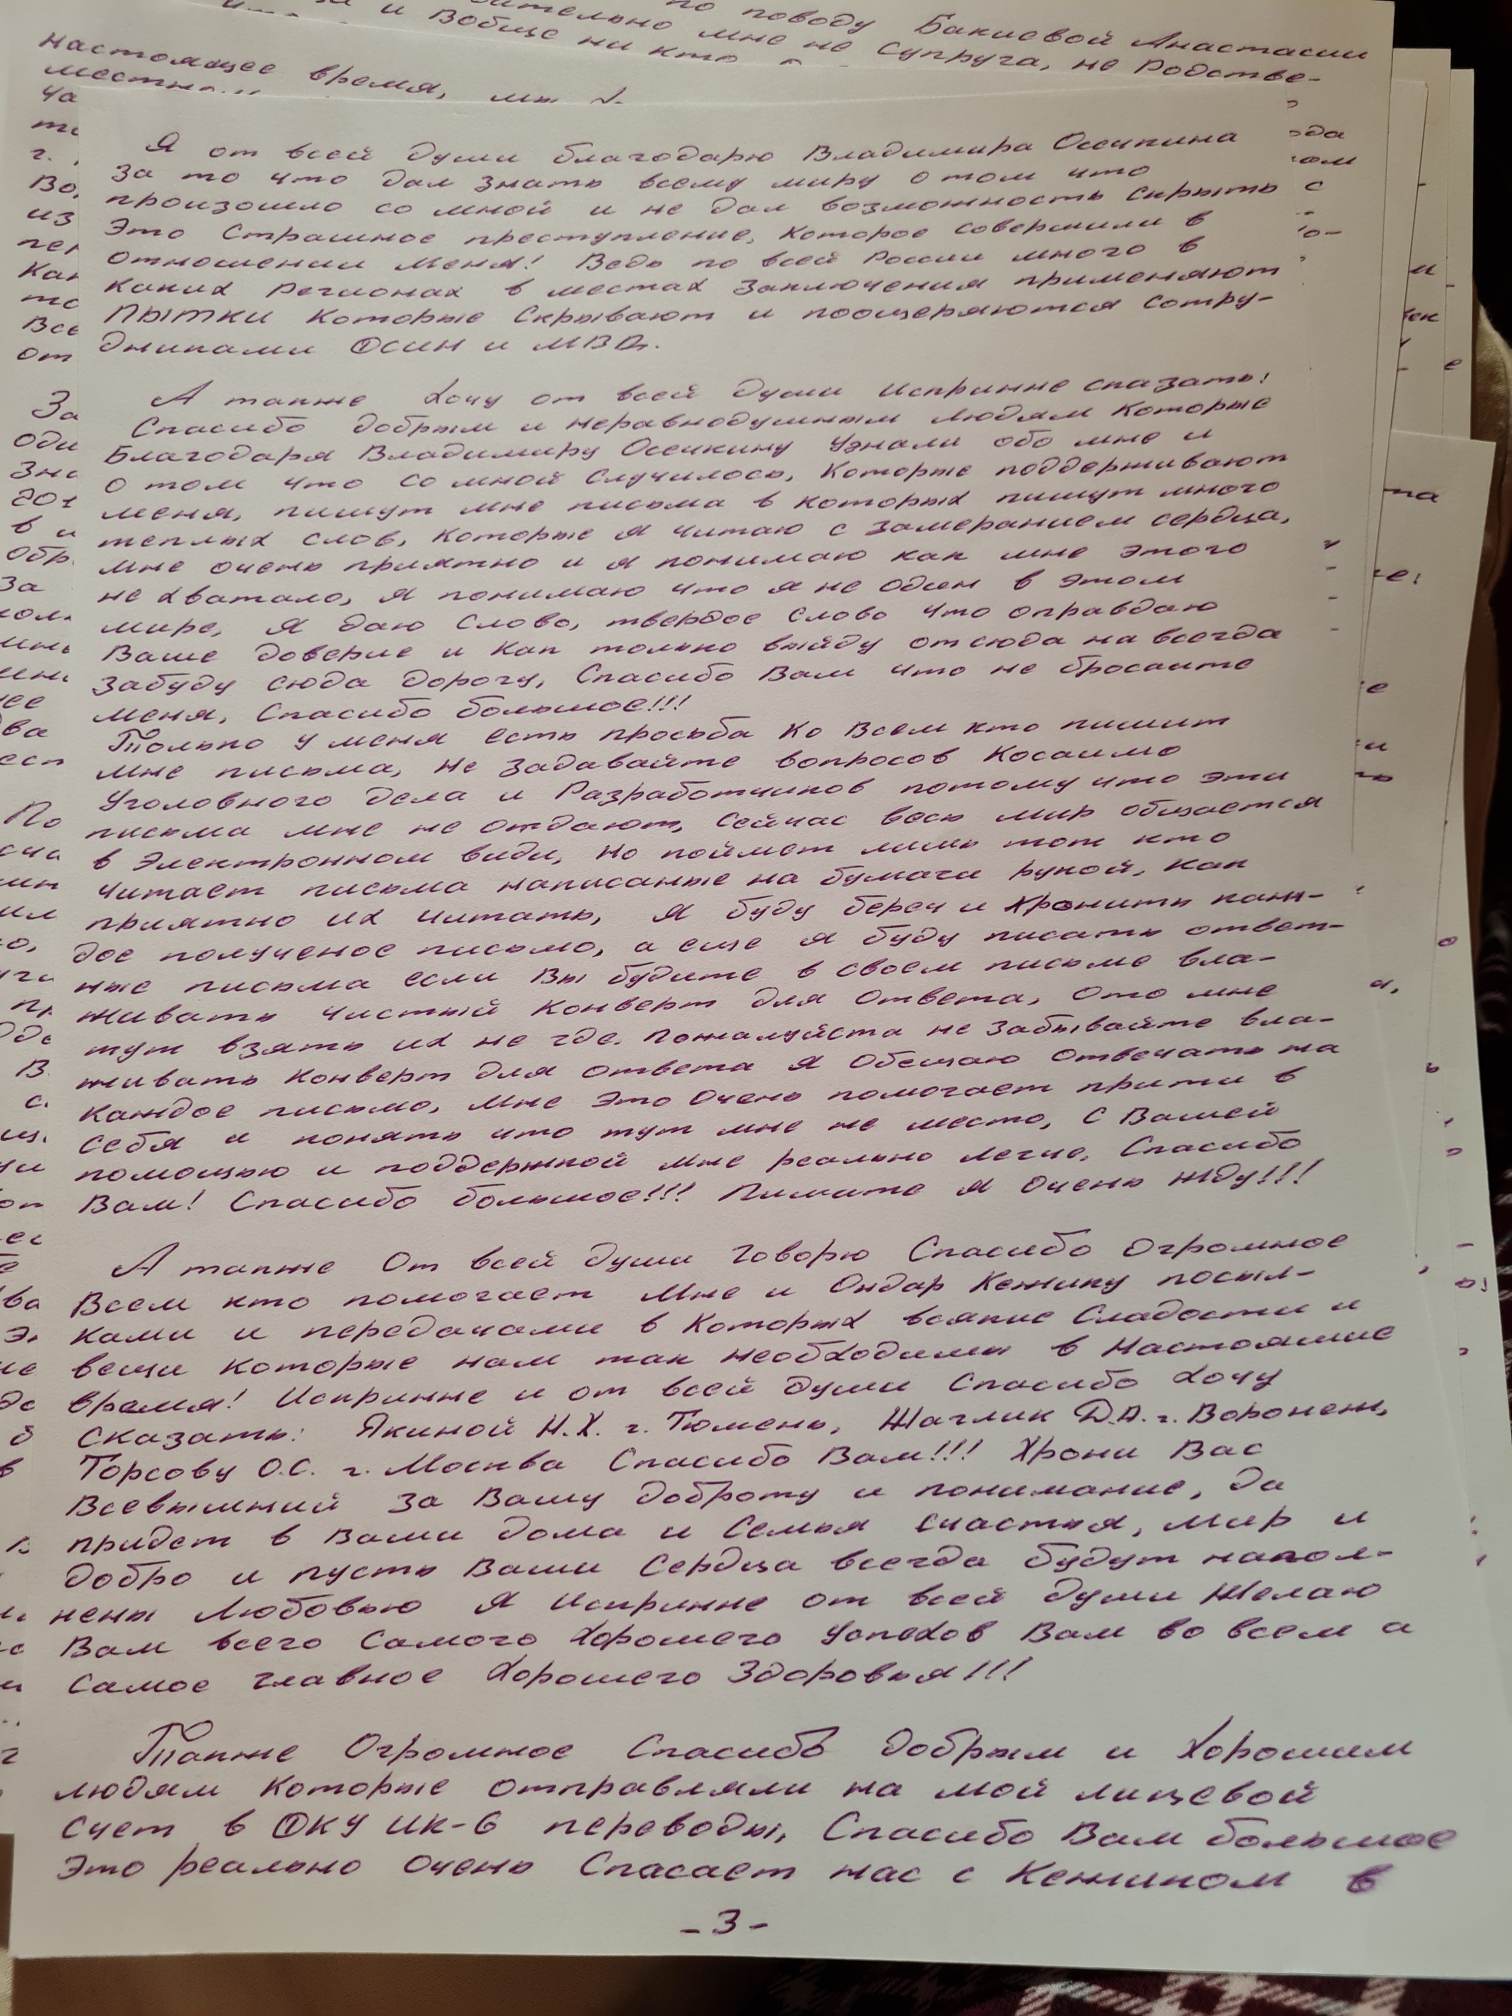 по поводу Бакиевой Анастасии
мне не супруга, не Родстве-
и Вобще ни кто
настоящее время, мы
Я от всей души благодарю Владимира Осечкина
За то что дал знать всему миру о том что
произошло со мной и не дал возможность скрыть
Это Страшное преступление, которое совершили в
отношении меня! Ведь по всей России много в
каких регионах в местах заключения применяют
ПЫТКИ которые скрывают и поощеряются сотру-
дниками ФСИН и МВД.
А также Хочу от всей души искринне сказать!
Спасибо добрым и неравнодушным людям которые
Благодаря Владимиру Осечкину узнали обо мне и
о том что со мной случилось, которые поддерживают
меня, пишут мне письма в которых пишут много
теплых слов, которые я читаю с замеранием сердца,
мне очень приятно и я понимаю как мне этого
не хватало, я понимаю что я не один в этом
мире, Я даю слово, твердое слово что оправдаю
Ваше доверие и как только выйду отсюда на всегда
забуду сюда дорогу, Спасибо Вам что не бросаите
меня, Спасибо большое!!!
Только у меня есть просьба ко Всем кто пишит
мне письма, не задавайте вопросов Косаимо
Уголовного дела и Разработчиков потому что эти
письма мне не отдают, сейчас весь мир общается
в электронном види, но поймет лишь тот кто
читает письма написаные на бумаги рукой, как
приятно их читать, Я буду береч и хронить каж-
дое полученое письмо, а еще я буду писать ответ-
ные письма если Вы будите в своем письме вла-
живать чистый конверт для ответа, Ото мне
тут взять их не где. пожалуйста не забывайте вла-
живать конверт для ответа Я обещаю отвечать на
каждое письмо, мне это очень помогает прити в
себя и понять что тут мне не место, с Вашей
помощью и поддержкой мне реально легче, Спасибо
Вам! Спасибо большое!!! Пишите я очень жду!!!
А также От всей души говорю Спасибо огромное
Всем кто помогает мне и Ондар Кежику посыл-
ками и передачами в которых всякие Сладости и
вещи которые нам так необходимы в настояшие
время! Искринне и от всей души Спасибо хочу
Сказать: Якиной Н.Х. г. Тюмень, Шаглик Д.А. г. Воронеж,
Торсову О.С. г. Москва Спасибо Вам!!! Хрони Вас
Всевышний за Вашу доброту и понимание, да
придет в Ваши дома и Семья счастья, мир и
добро и пусть Ваши сердца всегда будут напол-
нены Любовью Я искринне от всей души Желаю
Вам всего Самого хорошего Успехов Вам во всем а
Самое главное хорошего Здоровья!!!
Также Огромное Спасибо добрым и хорошим
людям которые отправляли на мой лицевой
счет в ФКУ ИК-6 переводы, Спасибо Вам большое
Это реально очень Спасает нас с Кежиком в
- 3 -